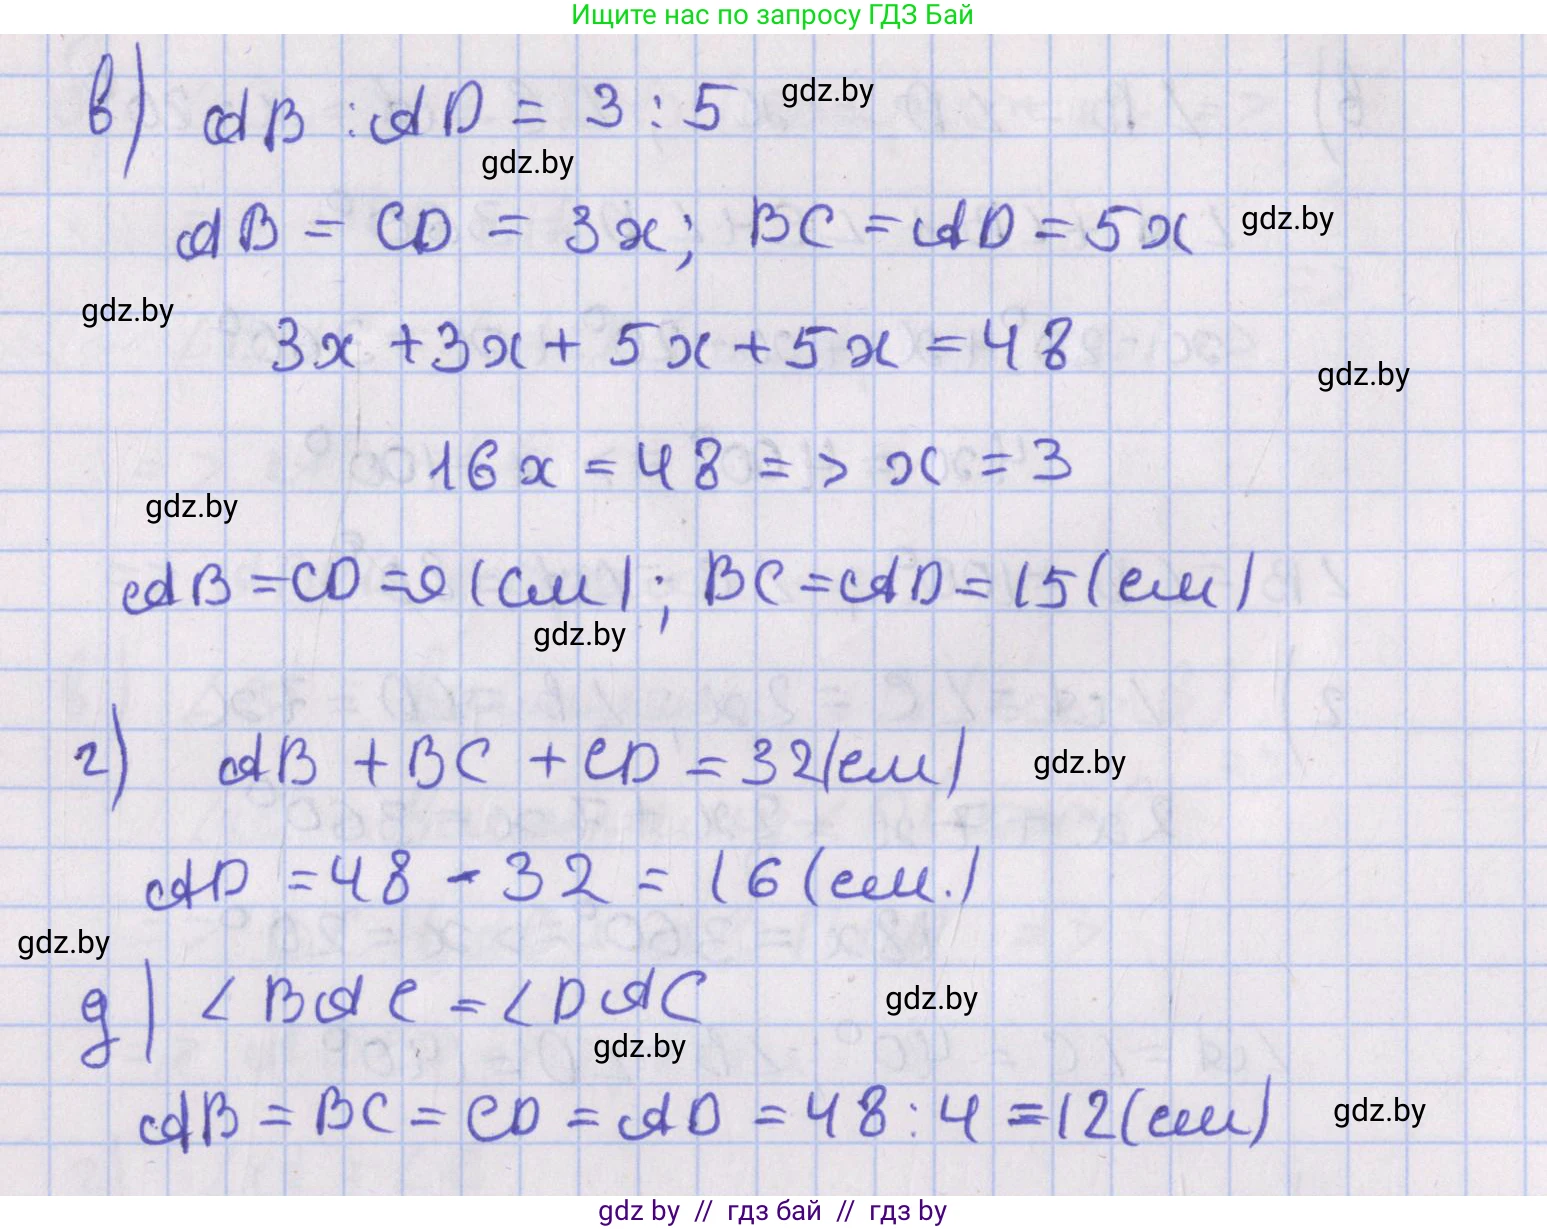 Ищите нас по запросу ГДЗ Бай
в) AB : AD = 3 : 5
gdz.by
gdz.by
AB = CD = 3x; BC = AD = 5x
gdz.by
gdz.by
3x + 3x + 5x + 5x = 48
gdz.by
16x = 48 => x = 3
gdz.by
AB = CD = 9 (см); BC = AD = 15 (см)
gdz.by
г) AB + BC + CD = 32 (см)
gdz.by
AD = 48 - 32 = 16 (см.)
gdz.by
д) ∠BAC = ∠DAC
gdz.by
gdz.by
AB = BC = CD = AD = 48 : 4 = 12 (см)
gdz.by
gdz by // гдз бай // гдз by